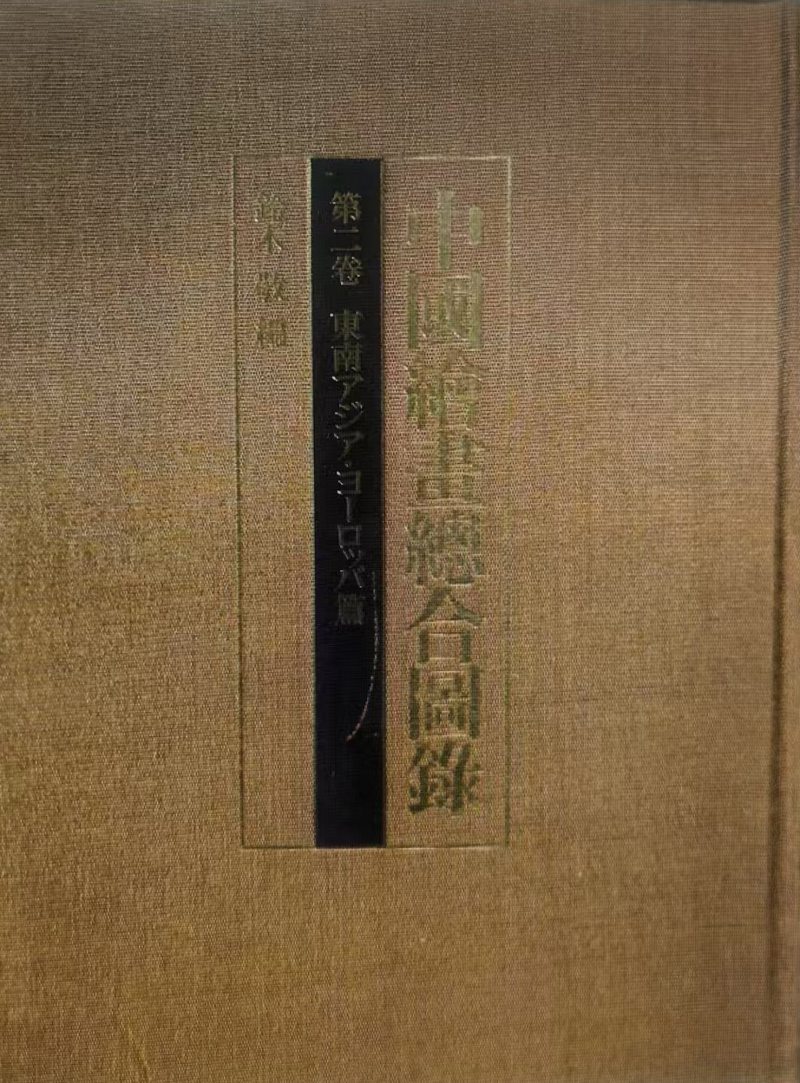 中國繪畫總合圖錄
第二卷 東南アジア・ヨーロッパ篇
鈴木 敬 編